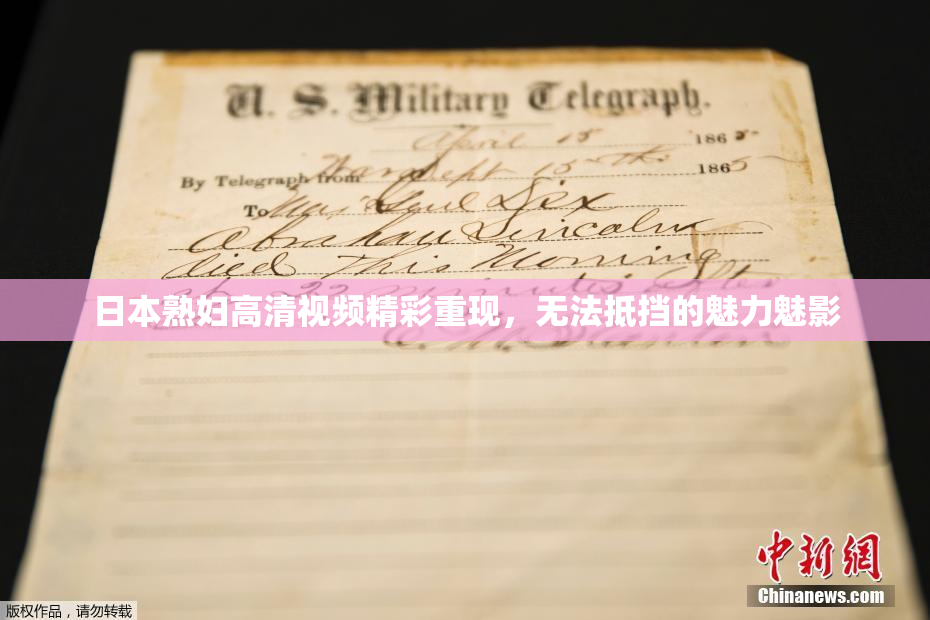 U. S. Military Telegraph.
April 15 1865
By Telegraph from War Dept 15th 1865
To Maj Genl Dix
Abraham Lincoln
died This Morning
at 22 minutes after
日本熟妇高清视频精彩重现，无法抵挡的魅力魅影
中新网
Chinanews.com
版权作品，请勿转载